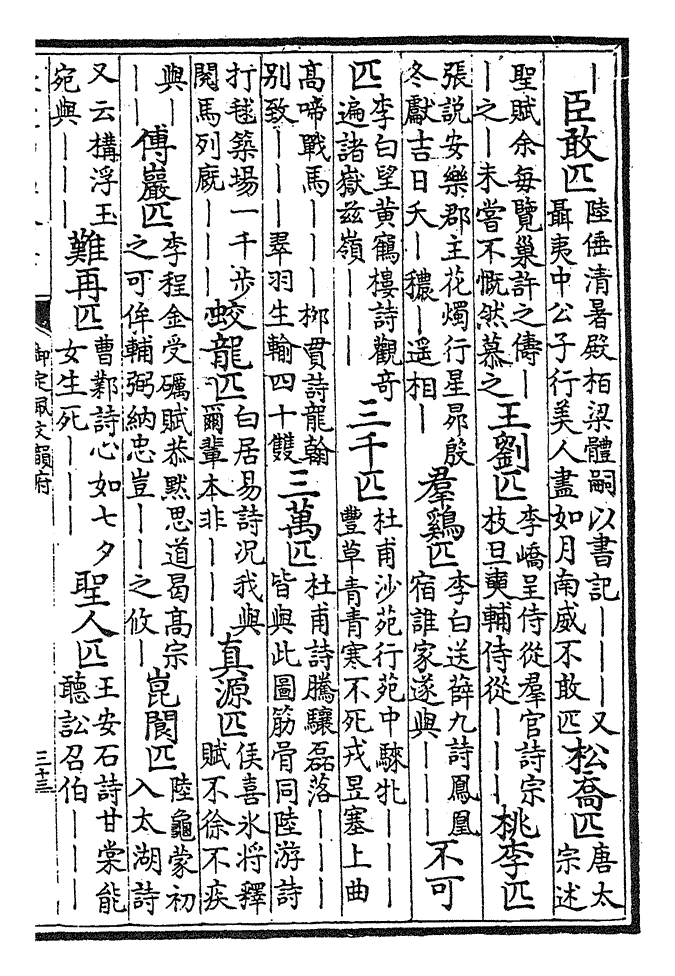 ｜臣敢匹
陸倕清暑殿栢梁體嗣以書記｜｜｜又
聶夷中公子行美人盡如月南威不敢匹
松喬匹
唐太
宗述
聖賦余每覽巢許之儔｜
｜之｜未嘗不慨然慕之
王劉匹
李嶠呈侍從羣官詩宗
枝旦奭輔侍從｜｜｜
桃李匹
張説安樂郡主花燭行星昴殷
冬獻吉日夭｜穠｜遥相｜
羣鷄匹
李白送薛九詩鳳凰
宿誰家遂與｜｜｜
不可
匹
李白望黄鶴樓詩觀奇
遍諸嶽兹嶺｜｜｜
三千匹
杜甫沙苑行苑中騋牝｜｜｜
豐草青青寒不死戎昱塞上曲
髙啼戰馬｜｜｜栁貫詩龍翰
别致｜｜｜翠羽生輸四十雙
三萬匹
杜甫詩騰驤磊落｜｜｜
皆與此圖筋骨同陸游詩
打毬築場一千步
閱馬列廐｜｜｜
蛟龍匹
白居易詩况我與
爾輩本非｜｜｜
真源匹
侯喜氷将釋
賦不徐不疾
與｜
｜｜
傅巖匹
李程金受礪賦恭黙思道曷髙宗
之可侔輔弼納忠豈｜｜之攸｜
崑閬匹
陸龜蒙初
入太湖詩
又云構浮玉
宛與｜｜｜
難再匹
曹鄴詩心如七夕
女生死｜｜｜
聖人匹
王安石詩甘棠能
聽訟召伯｜｜｜
御定佩文韻府
三十三